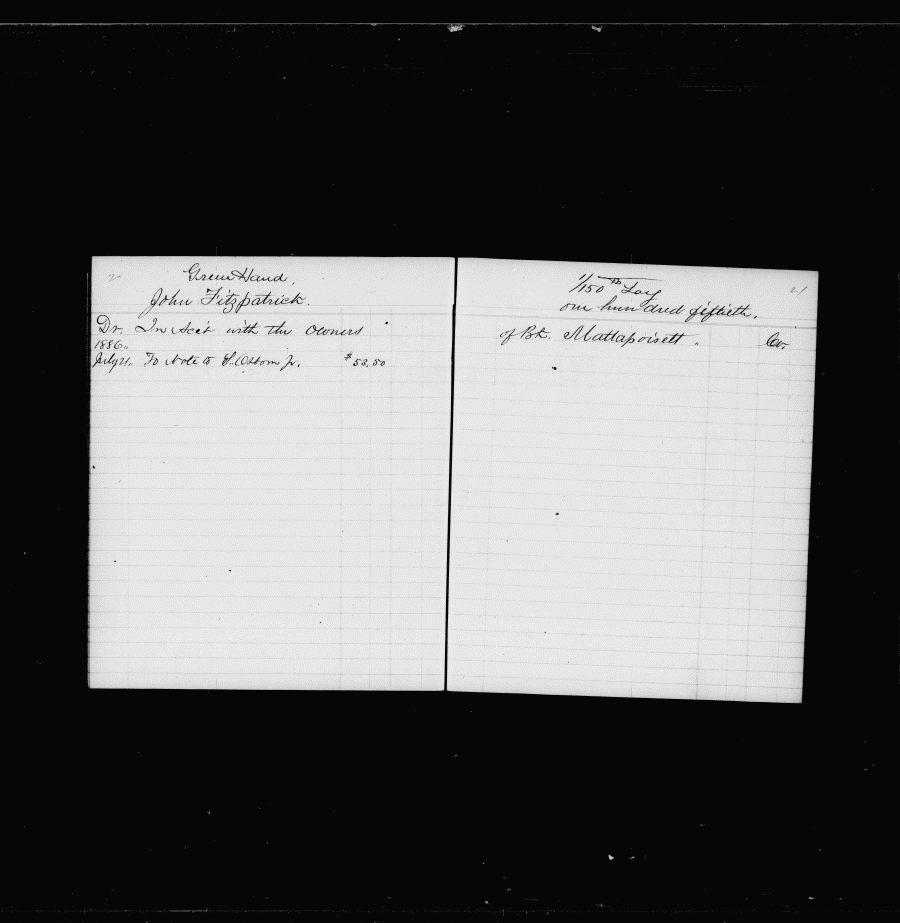 Green Hand.
John Fitzpatrick.
Dr. In Acc't with the Owners
1886..
July 21.. To Note to S. Osborn Jr. $53.50
21
1/150 th Lay
one hundred fiftieth.
of Bk. Mattapoisett .. Cr.